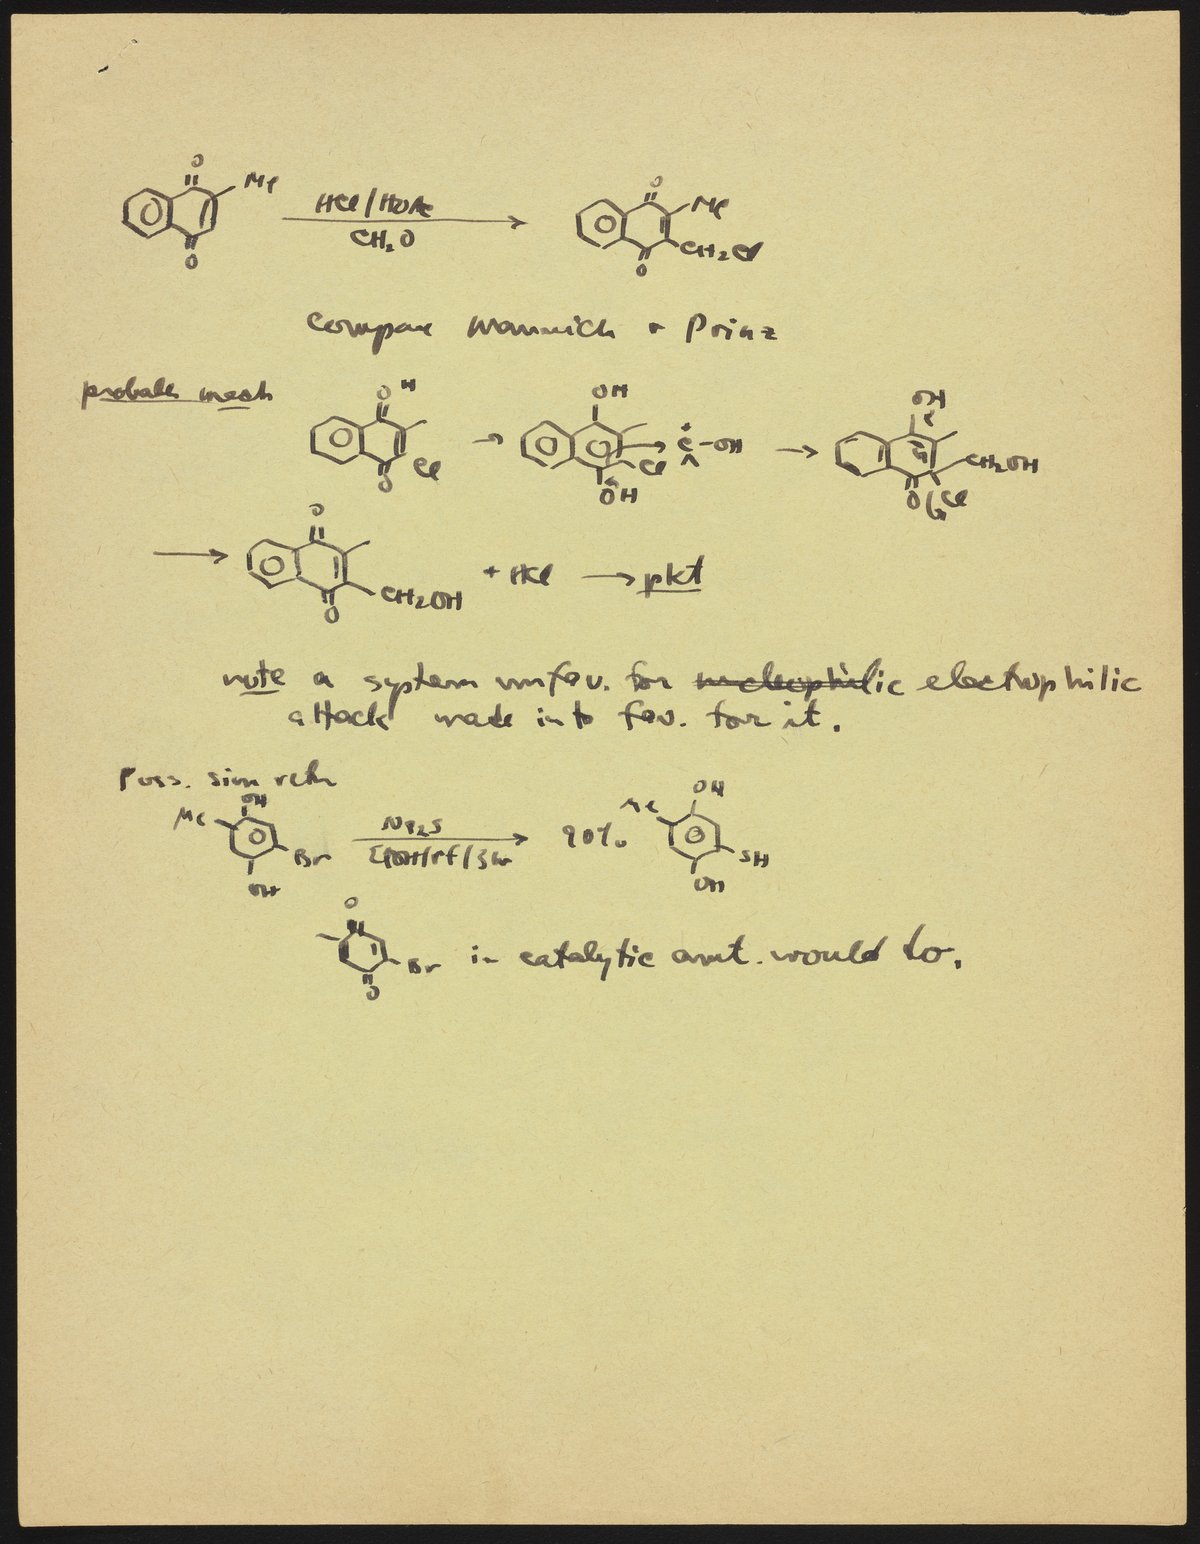 O
Me
HCl/HOAc
CH2O
O
O
Me
CH2Cl
O
compare Mannich + Prinz
probable mech
O H
Cl
O
→
OH
C-OH
Cl
OH
→
OH
CH2OH
O Cl
→
O
CH2OH
O
+ HCl → pkt
note a system unfav. for nucleophilic electrophilic
attack made into fav. for it.
Poss. sim rctn
Me
OH
Br
OH
Na2S
EtOH/rf/3hr
90%
Me
OH
SH
OH
O
Br
O
in catalytic amt. would do.